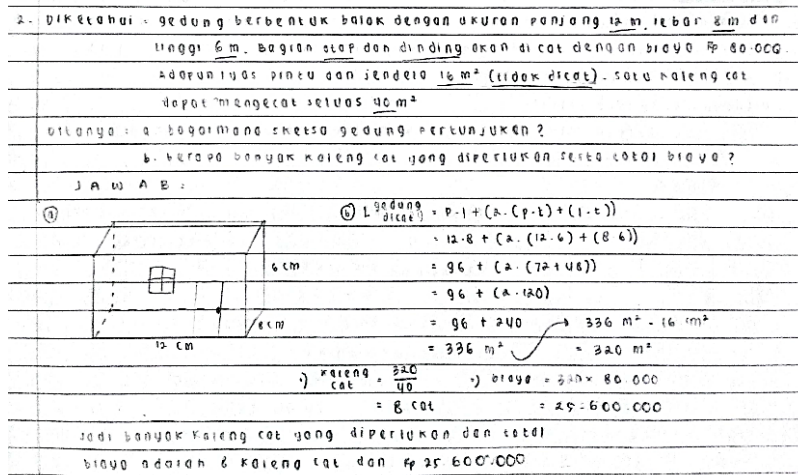 2. Diketahui : gedung berbentuk balok dengan ukuran panjang 12 m, lebar 8 m dan
tinggi 6 m. Bagian atap dan dinding akan di cat dengan biaya Rp 80.000.
Adapun luas pintu dan jendela 16 m² (tidak dicat). Satu kaleng cat
dapat mengecat seluas 40 m²
Ditanya : a. bagaimana sketsa gedung pertunjukan ?
b. berapa banyak kaleng cat yang diperlukan serta total biaya ?
JAWAB :
(a)
6 cm
8 cm
12 cm
(b) L gedung dicat = p.l + (2.(p.t) + (l.t))
= 12.8 + (2.(12.6) + (8 6))
= 96 + (2.(72+48))
= 96 + (2.120)
= 96 + 240 → 336 m² - 16 m²
= 336 m² = 320 m²
•) kaleng cat = 320/40 •) biaya = 320 × 80.000
= 8 cat = 25.600.000
Jadi banyak kaleng cat yang diperlukan dan total
biaya adalah 8 kaleng cat dan Rp 25.600.000